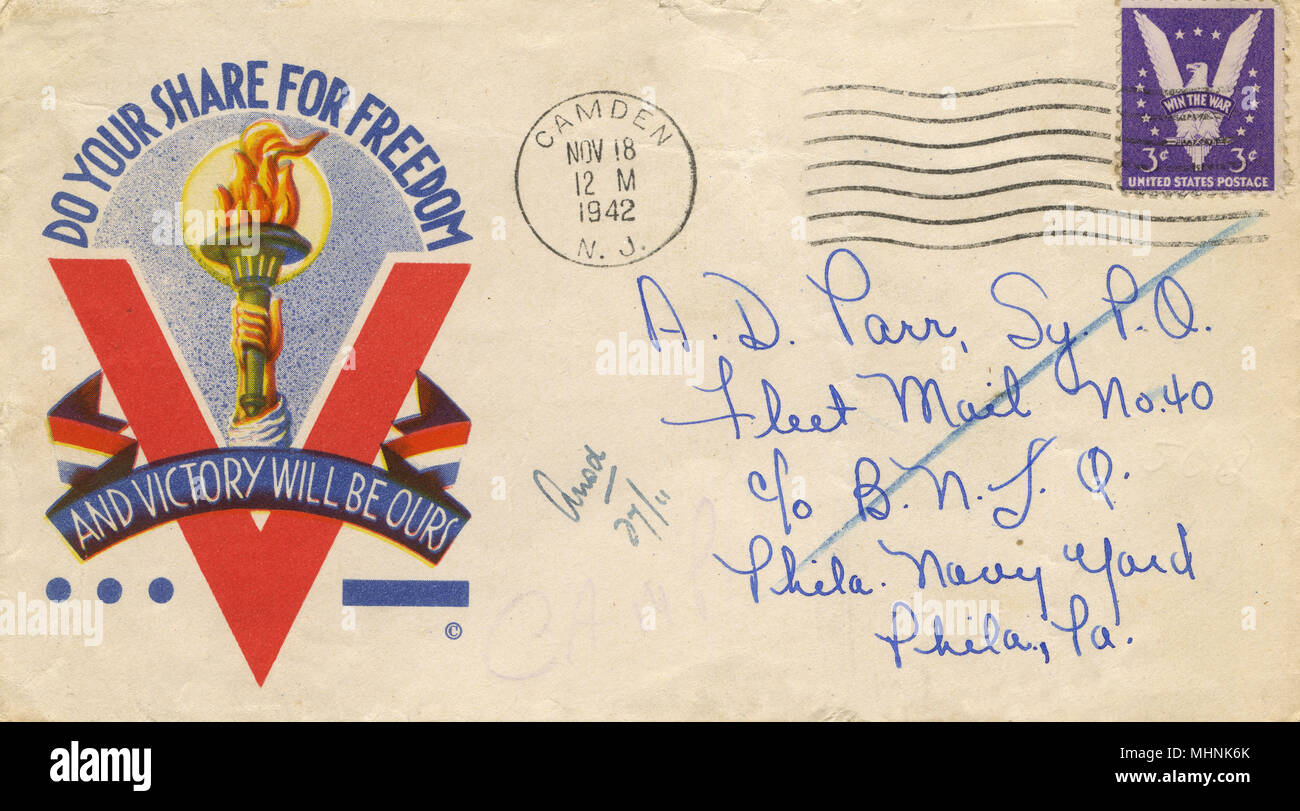 DO YOUR SHARE FOR FREEDOM
AND VICTORY WILL BE OURS
©
CAMDEN
NOV 18
12 M
1942
N. J.
WIN THE WAR
3¢ 3¢
UNITED STATES POSTAGE
A. D. Parr, Sy. P.O.
Fleet Mail No. 40
c/o B. N. L. O.
Phila. Navy Yard
Phila., Pa.
27/11
alamy
Image ID: MHNK6K
www.alamy.com